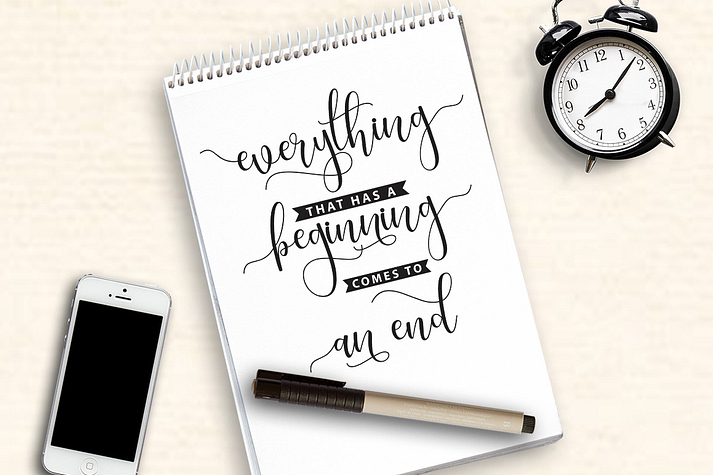 everything
THAT HAS A
beginning
COMES TO
an end
12
1
2
3
4
5
6
7
8
9
10
11